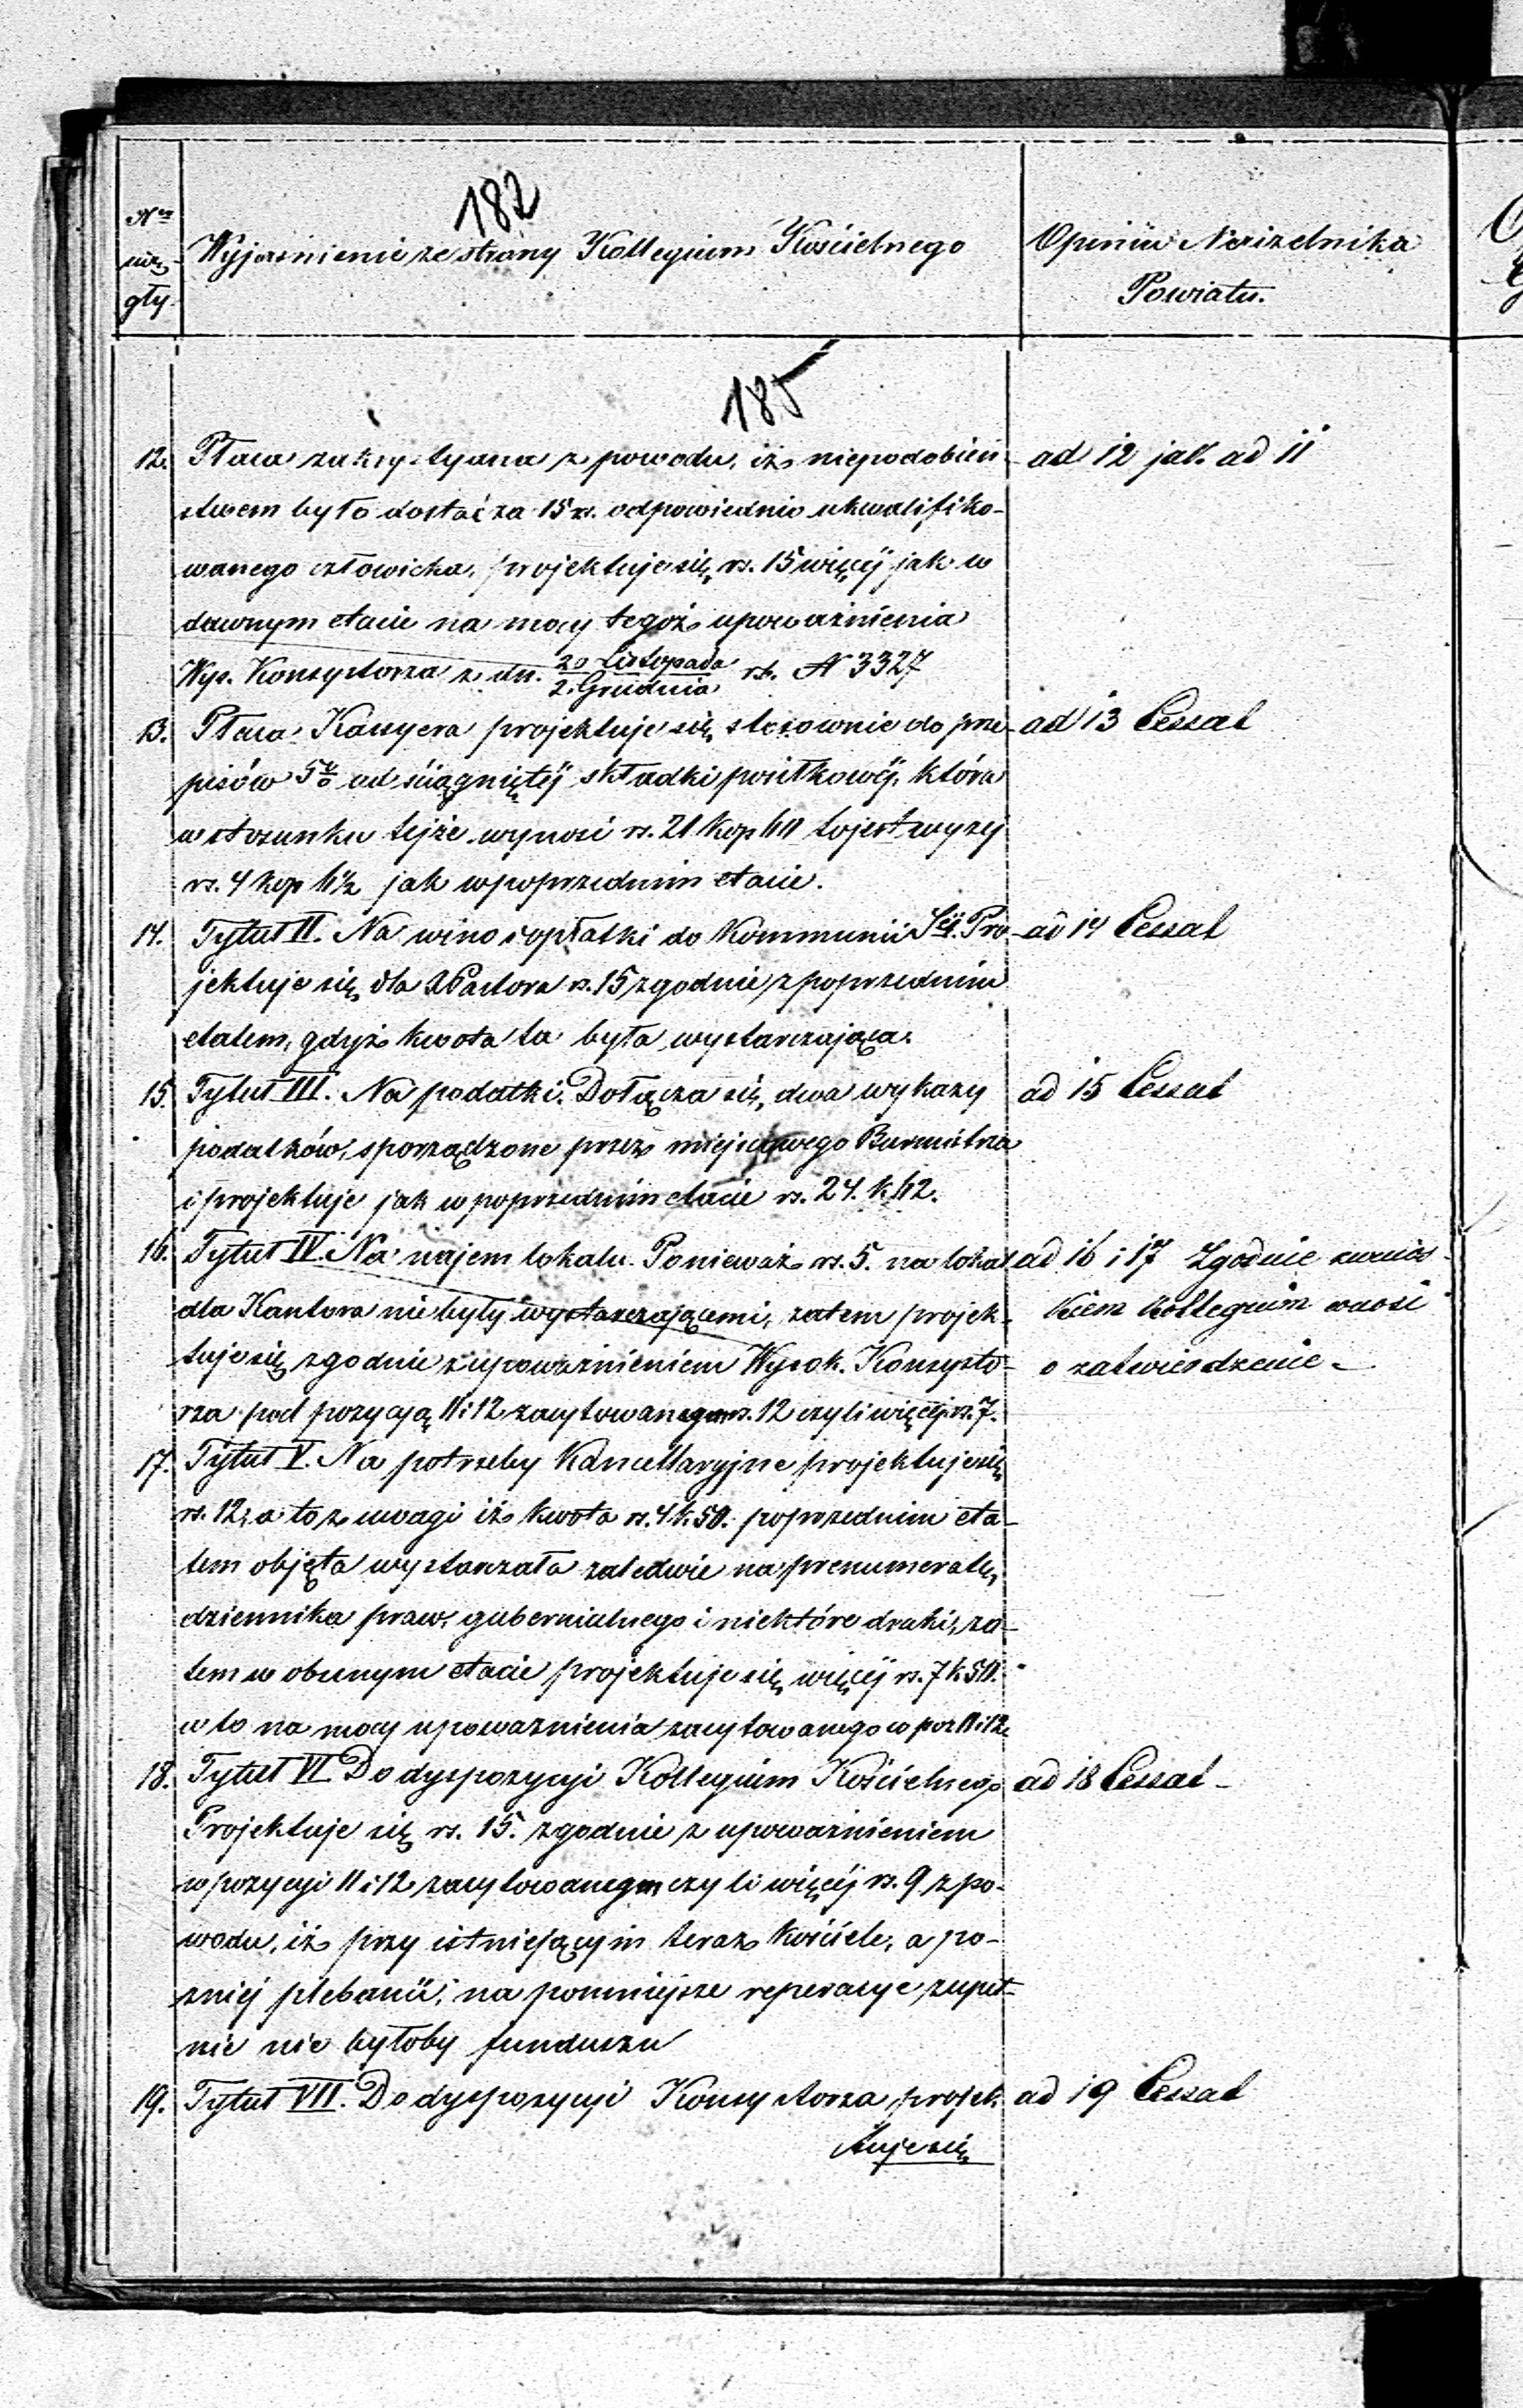 182
Nr
szcze
gły.
Wyjaśnienie ze strony Kollegium Kościelnego
Opinia Naczelnika
Powiatu.
185
12. Płaca zakrystyana z powodu, iż niepodobień-
stwem było dostać za 15 rs. odpowiednio ukwalifiko-
wanego człowieka, projektuje się rs. 15 więcéj jak w
dawnym etacie na mocy tegoż upoważnienia
Wys. Konsystorza z dn. 20 Listopada / 2 Grudnia rb. N 3327
ad 12 jak ad 11
13. Płaca Kassyera projektuje się stosownie do prze-
pisów 5% od ściągniętéj składki posiłkowéj, która
w stosunku tejże wynosi rs. 21 kop 60 to jest wyzej
rs. 4 kop 6½ jak w poprzednim etacie.
ad 13 Cessat
14. Tytuł II. Na wino i opłatki do Kommunii Śéj. Pro-
jektuje się dla Pastora rs. 15 zgodnie z poprzednim
etatem, gdyż kwota ta była wystarczająca.
ad 14 Cessat
15. Tytuł III. Na podatki. Dołącza się dwa wykazy
podatków, sporządzone przez miejscowego Burmistrza
i projektuje jak w poprzednim etacie rs. 24. k 62.
ad 15 Cessat
16. Tytuł IV. Na najem lokalu. Ponieważ rs. 5. na lokal
dla Kantora nie były wystarczającemi, zatem projek-
tuje się zgodnie z upoważnieniem Wysok. Konsysto-
rza pod pozycyą 11 i 12 zacytowanegm rs. 12 czyli więcéj rs. 7.
ad 16 i 17 Zgodnie z wnios-
kiem Kollegium wnosi
o zatwierdzenie -
17. Tytuł V. Na potrzeby Kancellaryjne projektuje się
rs. 12, a to z uwagi iż kwota rs. 4 k. 50. poprzednim eta-
tem objęta wystarzała zaledwie na prenumeratę
dziennika praw, gubernialnego i niektóre druki, za-
tem w obecnym etacie projektuje się więcéj rs. 7 k 50.
a to na mocy upoważnienia zacytowanego w poz 11 i 12
18. Tytuł VI. Do dyspozycyi Kollegium Kościelnego
Projektuje się rs. 15. zgodnie z upoważnieniem
w pozycyi 11 i 12 zacytowanegm czyli więcéj rs. 9 z po-
wodu, iż przy istniejącym teraz kościele, a po-
zniéj plebanii, na pomniejsze reperacye zupeł-
nie nie byłoby funduszu
ad 18 Cessat -
19. Tytuł VII. Do dyspozycyi Konsystorza projek
tuje się
ad 19 Cessat